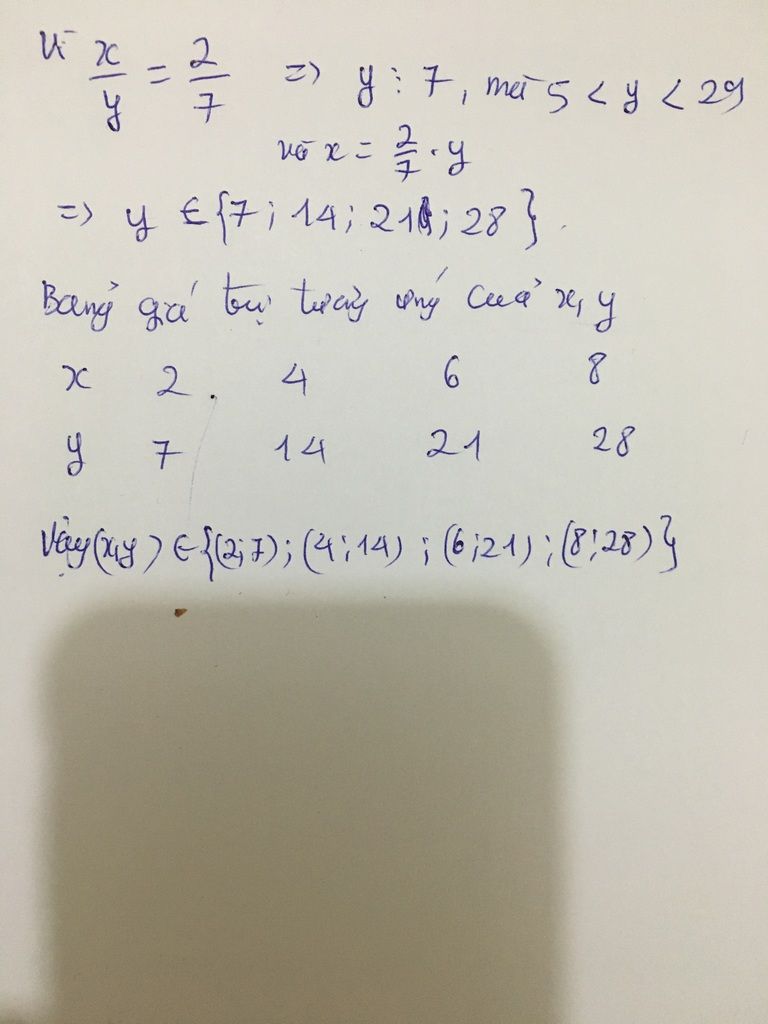 Vì x/y = 2/7 => y ⋮ 7, mà 5 < y < 29
và x = 2/7 . y
=> y ∈ {7; 14; 21; 28}.
Bảng giá trị tương ứng của x, y
x 2 4 6 8
y 7 14 21 28
Vậy (x,y) ∈ {(2;7); (4;14); (6;21); (8;28)}